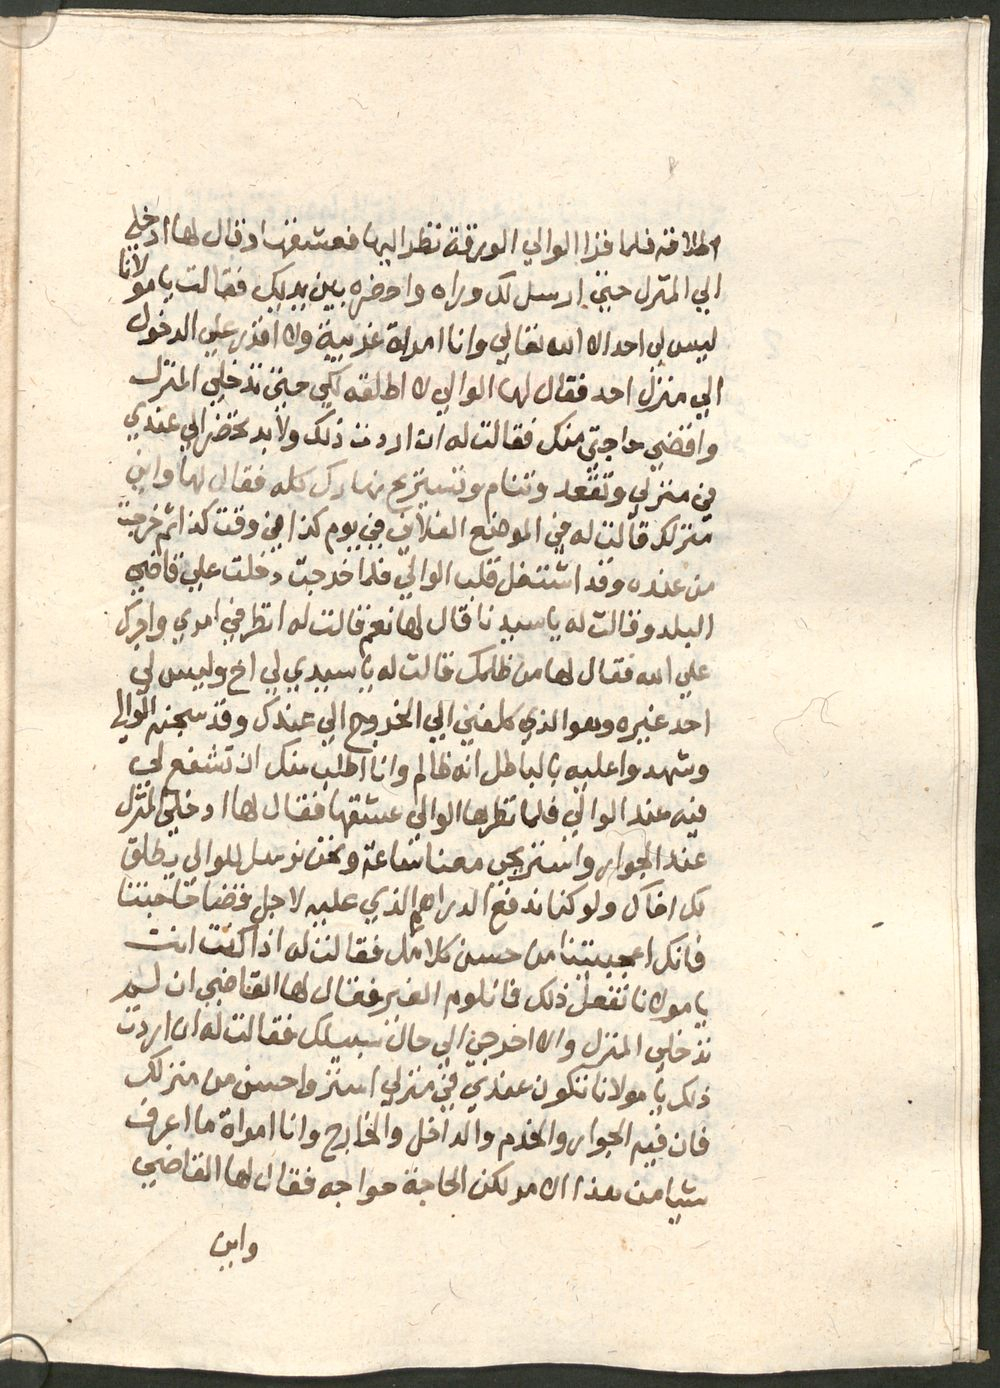 اطلاقه فلما قرا الوالي الورقة نظر اليها فعشقها وقال لها ادخلي
الي المنزل حتي ارسل لك وراه واحضره بين يديك فقالت يا مولانا
ليس لي احد الا الله تعالي وانا امراة غريبة ولا اقدر علي الدخول
الي منزل احد فقال لها الوالي لا اطلقه لكي حتي تدخلي المنزل
واقضي حاجتي منك فقالت له ان اردت ذلك ولا بد تحضر الي عندي
في منزلي وتقعد وتنام وتستريح نهارك كله فقال لها واين
منزلك قالت له في الموضع الفلاني في يوم كذا في وقت كذا ثم خرجت
من عنده وقد اشتغل قلب الوالي فلما خرجت دخلت علي قاضي
البلد وقالت له يا سيدنا قال لها نعم قالت له انظر في امري واجرك
علي الله فقال لها من ظلمك قالت له يا سيدي لي اخ وليس لي
احد غيره وهو الذي كلفني الي الخروج الي عندك وقد سجنه الوالي
وشهدوا عليه بالباطل انه ظالم وانا اطلب منك ان تشفع لي
فيه عند الوالي فلما نظرها الوالي عشقها فقال لها ادخلي المنزل
عند الجوار واستريحي معنا ساعة ونحن نرسل للوالي يطلق
لك اخاك ولو كنا ندفع الدراهم الذي عليه لاجل قضا حاجتنا
فانك اعجبتينا من حسن كلامك فقالت له اذا كنت انت
يا مولانا تفعل ذلك فا نلوم الغير فقال لها القاضي ان لم
تدخلي المنزل والا اخرجي الي حال سبيلك فقالت له ان اردت
ذلك يا مولانا تكون عندي في منزلي استر واحسن من منزلك
فان فيه الجوار والخدم والداخل والخارج وانا امراة ما اعرف
شيا من هذا الامر لكن الحاجة حواجه فقال لها القاضي
واين